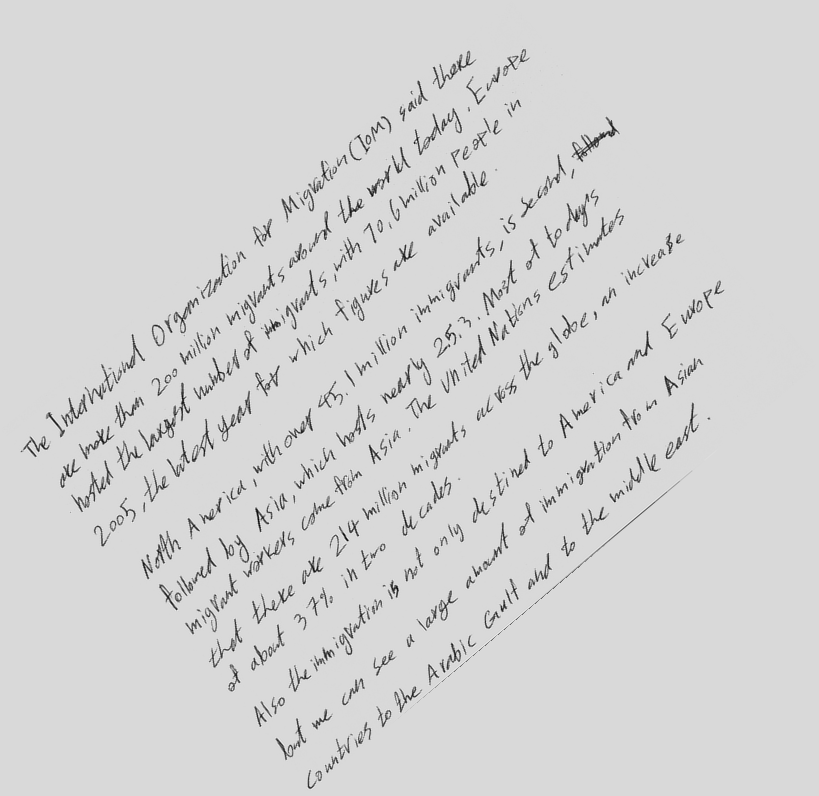 The International Organization for Migration (IOM) said there
are more than 200 million migrants around the world today. Europe
hosted the largest number of immigrants, with 70,6 million people in
2005, the latest year for which figures are available.
North America, with over 45.1 million immigrants, is second,
followed by Asia, which hosts nearly 25.3. Most of today's
migrant workers come from Asia. The United Nations estimates
that there are 214 million migrants across the globe, an increase
of about 37% in two decades.
Also the immigration is not only destined to America and Europe
but we can see a large amount of immigration from Asian
countries to the Arabic Gulf and to the middle east.